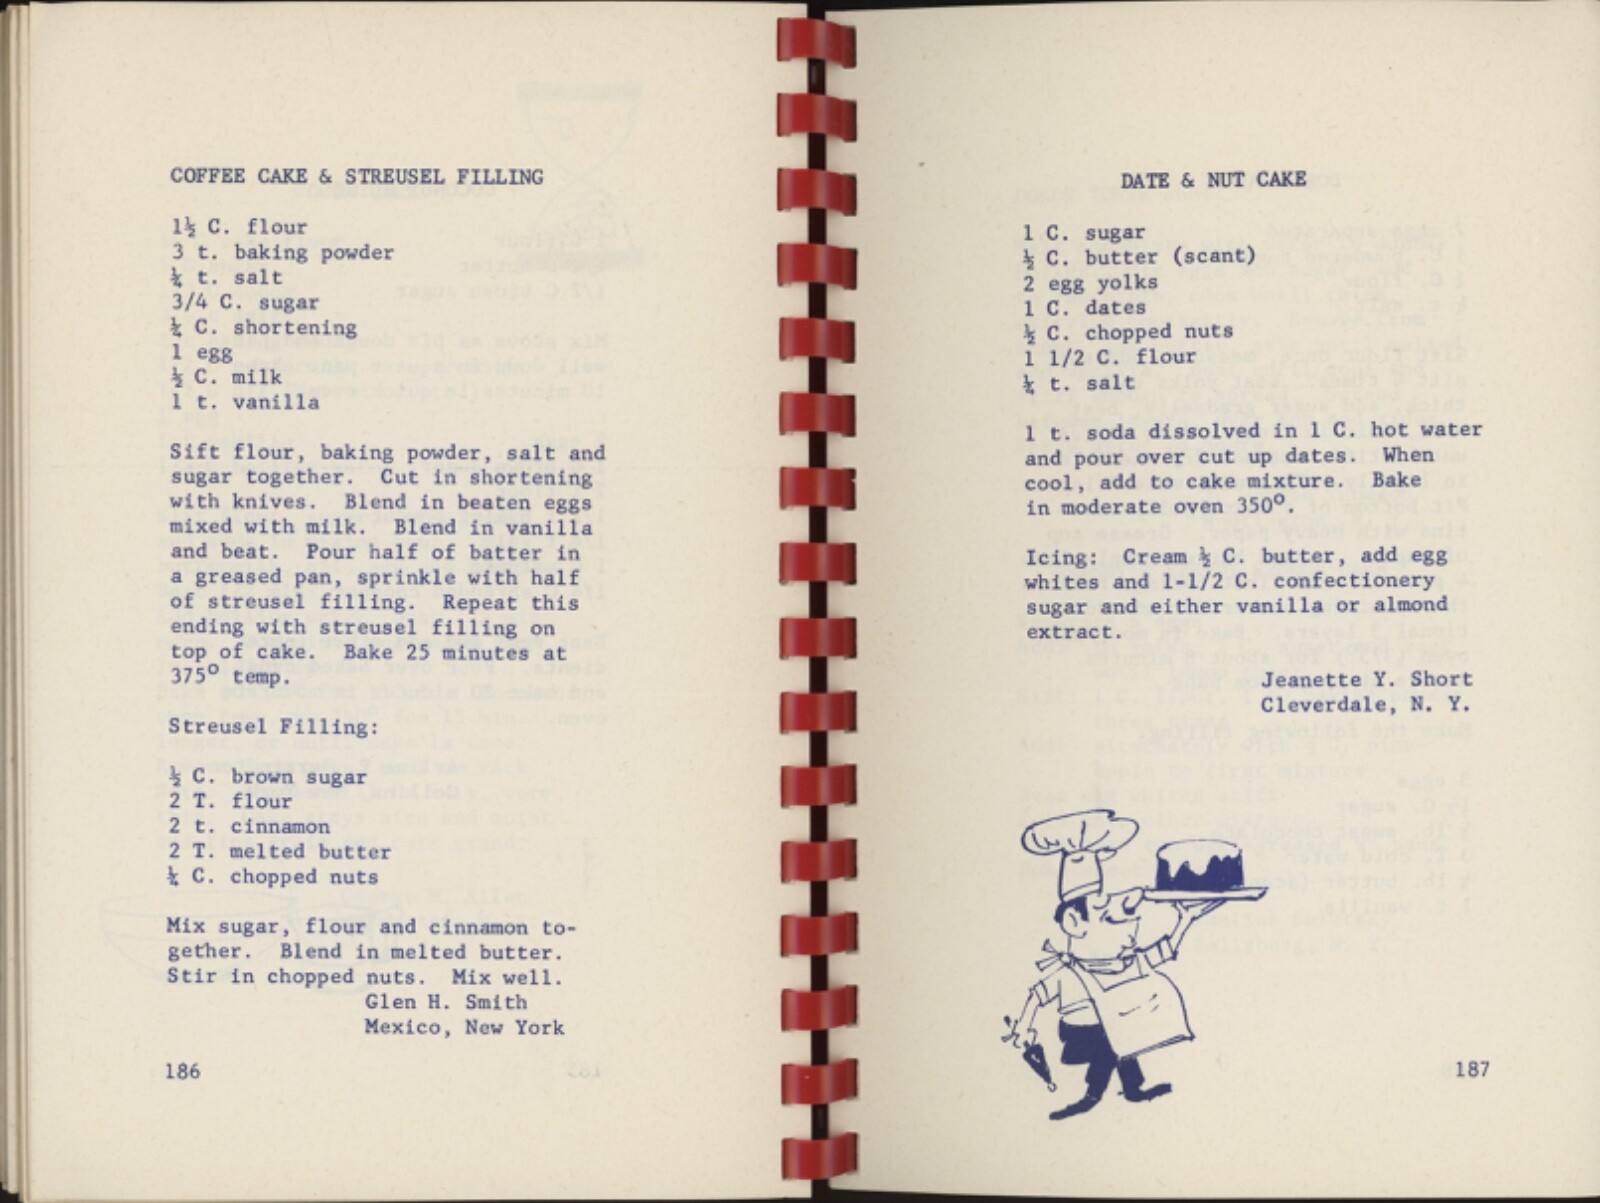 COFFEE CAKE & STREUSEL FILLING
1½ C. flour
3 t. baking powder
¼ t. salt
3/4 C. sugar
¼ C. shortening
1 egg
½ C. milk
1 t. vanilla
Sift flour, baking powder, salt and
sugar together. Cut in shortening
with knives. Blend in beaten eggs
mixed with milk. Blend in vanilla
and beat. Pour half of batter in
a greased pan, sprinkle with half
of streusel filling. Repeat this
ending with streusel filling on
top of cake. Bake 25 minutes at
375° temp.
Streusel Filling:
½ C. brown sugar
2 T. flour
2 t. cinnamon
2 T. melted butter
¼ C. chopped nuts
Mix sugar, flour and cinnamon to-
gether. Blend in melted butter.
Stir in chopped nuts. Mix well.
Glen H. Smith
Mexico, New York
186
DATE & NUT CAKE
1 C. sugar
½ C. butter (scant)
2 egg yolks
1 C. dates
½ C. chopped nuts
1 1/2 C. flour
¼ t. salt
1 t. soda dissolved in 1 C. hot water
and pour over cut up dates. When
cool, add to cake mixture. Bake
in moderate oven 350°.
Icing: Cream ½ C. butter, add egg
whites and 1-1/2 C. confectionery
sugar and either vanilla or almond
extract.
Jeanette Y. Short
Cleverdale, N. Y.
187